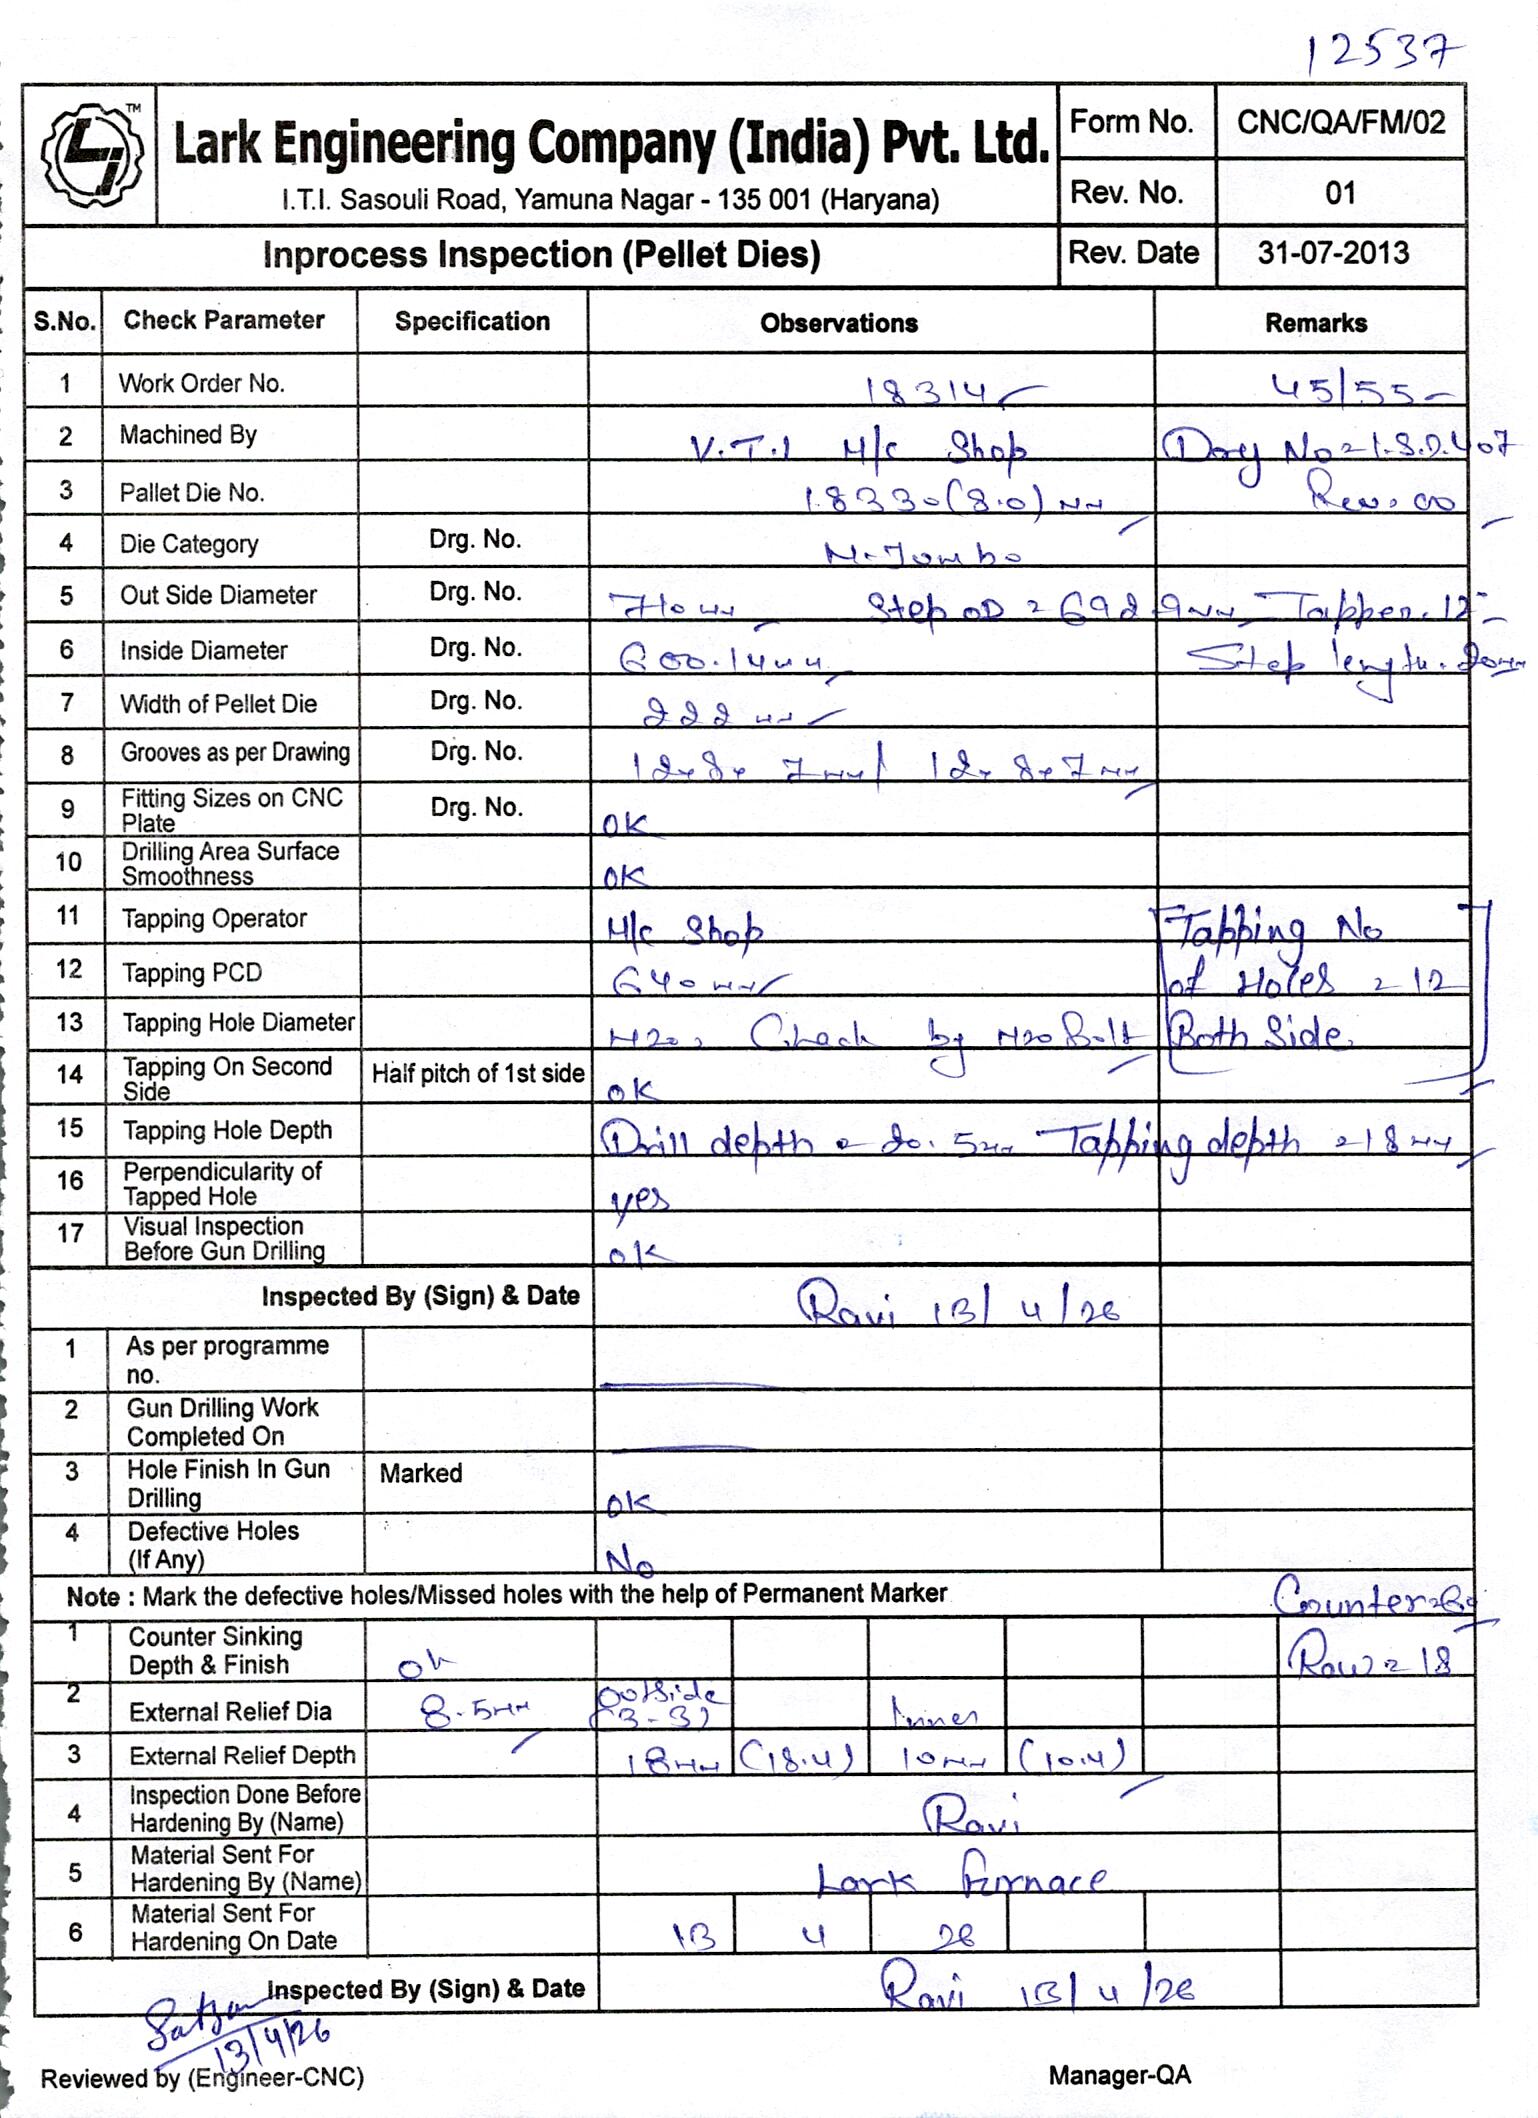 12537
Lark Engineering Company (India) Pvt. Ltd.
I.T.I. Sasouli Road, Yamuna Nagar - 135 001 (Haryana)
Form No. CNC/QA/FM/02
Rev. No. 01
Inprocess Inspection (Pellet Dies) Rev. Date 31-07-2013
S.No. Check Parameter Specification Observations Remarks
1 Work Order No. 18314 45/55
2 Machined By V.T.I M/c Shop Drg No = I.S.D.407
3 Pallet Die No. 18330(8.0)mm Rev. 00
4 Die Category Drg. No. M-Jombo
5 Out Side Diameter Drg. No. 710mm Step OD = 692.9mm Tapper. 12°
6 Inside Diameter Drg. No. 600.14mm Step length. 20mm
7 Width of Pellet Die Drg. No. 222mm
8 Grooves as per Drawing Drg. No. 12x8x7mm / 12x8x7mm
9 Fitting Sizes on CNC Plate Drg. No. OK
10 Drilling Area Surface Smoothness OK
11 Tapping Operator M/c Shop Tapping No
12 Tapping PCD 640mm of Holes = 12
13 Tapping Hole Diameter M20, Check by M20 Bolt Both Side
14 Tapping On Second Side Half pitch of 1st side OK
15 Tapping Hole Depth Drill depth = 20.5mm Tapping depth = 18mm
16 Perpendicularity of Tapped Hole yes
17 Visual Inspection Before Gun Drilling OK
Inspected By (Sign) & Date Ravi 13/4/26
1 As per programme no.
2 Gun Drilling Work Completed On
3 Hole Finish In Gun Drilling Marked OK
4 Defective Holes (If Any) No
Note : Mark the defective holes/Missed holes with the help of Permanent Marker
1 Counter Sinking Depth & Finish Ok Row = 18
2 External Relief Dia 8.5mm Outside (3-3) Inner
3 External Relief Depth 18mm (18.4) 10mm (10.4)
4 Inspection Done Before Hardening By (Name) Ravi
5 Material Sent For Hardening By (Name) Lark Furnace
6 Material Sent For Hardening On Date 13 4 26
Inspected By (Sign) & Date Ravi 13/4/26
13/4/26
Reviewed by (Engineer-CNC) Manager-QA